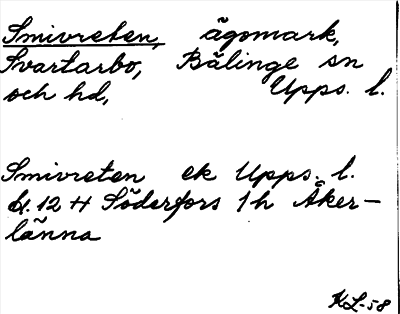 Smivreten, ägomark,
Svartarbo, Bälinge sn
och hd, Upps. l.
Smivreten ek Upps. l.
bl. 12 H Söderfors 1h Åker-
länna
KL-58